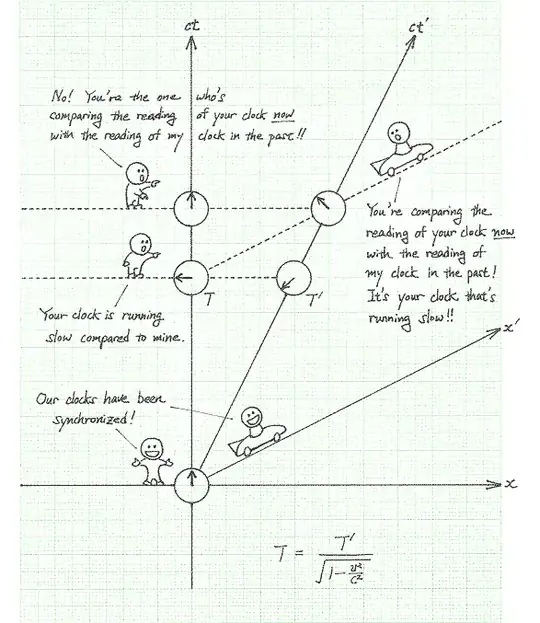 ct
ct'
No! You're the one who's
comparing the reading of your clock now
with the reading of my clock in the past!!
You're comparing the
reading of your clock now
with the reading of
my clock in the past!
It's your clock that's
running slow!!
T
T'
Your clock is running
slow compared to mine.
x'
Our clocks have been
synchronized!
x
T = T' / √(1 - v²/c²)